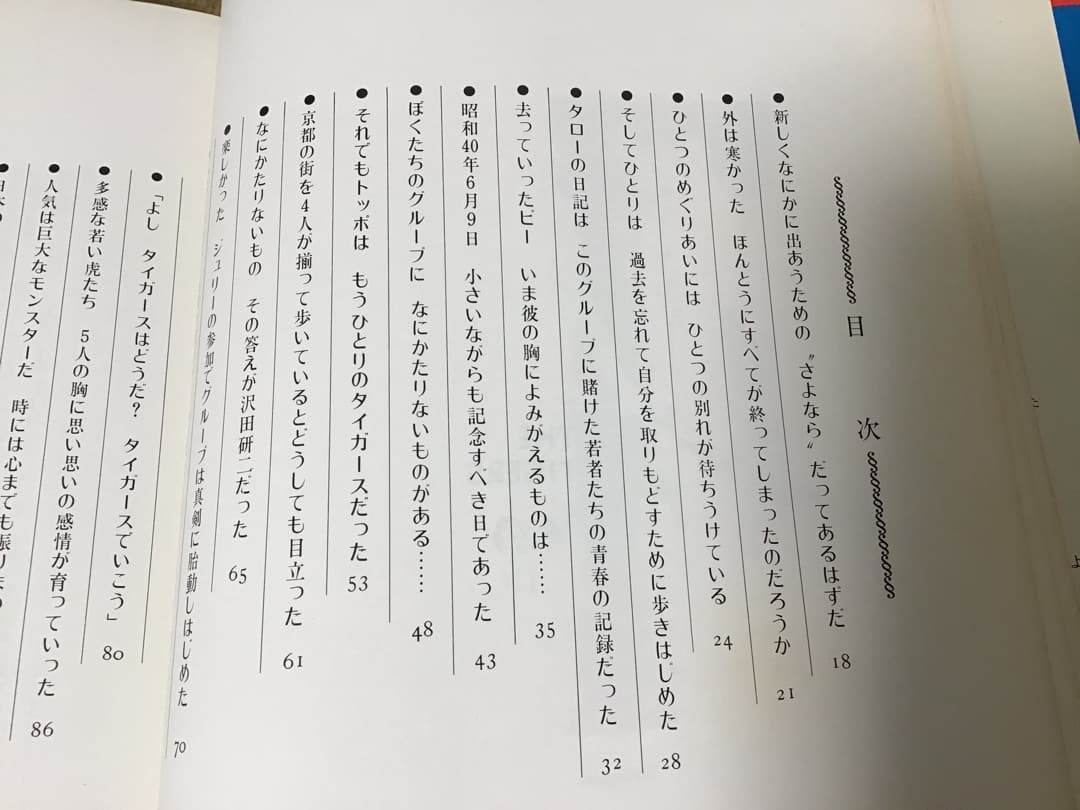 目次
● 新しくなにかに出あうための〝さよなら〟だってあるはずだ 18
● 外は寒かった ほんとうにすべてが終ってしまったのだろうか 21
● ひとつのめぐりあいには ひとつの別れが待ちうけている 24
● そしてひとりは 過去を忘れて自分を取りもどすために歩きはじめた 28
● タローの日記は このグループに賭けた若者たちの青春の記録だった 32
● 去っていったピー いま彼の胸によみがえるものは…… 35
● 昭和40年6月9日 小さいながらも記念すべき日であった 43
● ぼくたちのグループに なにかたりないものがある…… 48
● それでもトッポは もうひとりのタイガースだった 53
● 京都の街を4人が揃って歩いているとどうしても目立った 61
● なにかたりないもの その答えが沢田研二だった 65
● 楽しかった ジュリーの参加でグループは真剣に胎動しはじめた 70
● 「よし タイガースはどうだ? タイガースでいこう」 80
● 多感な若い虎たち 5人の胸に思い思いの感情が育っていった 86
● 人気は巨大なモンスターだ 時には心までも振りま